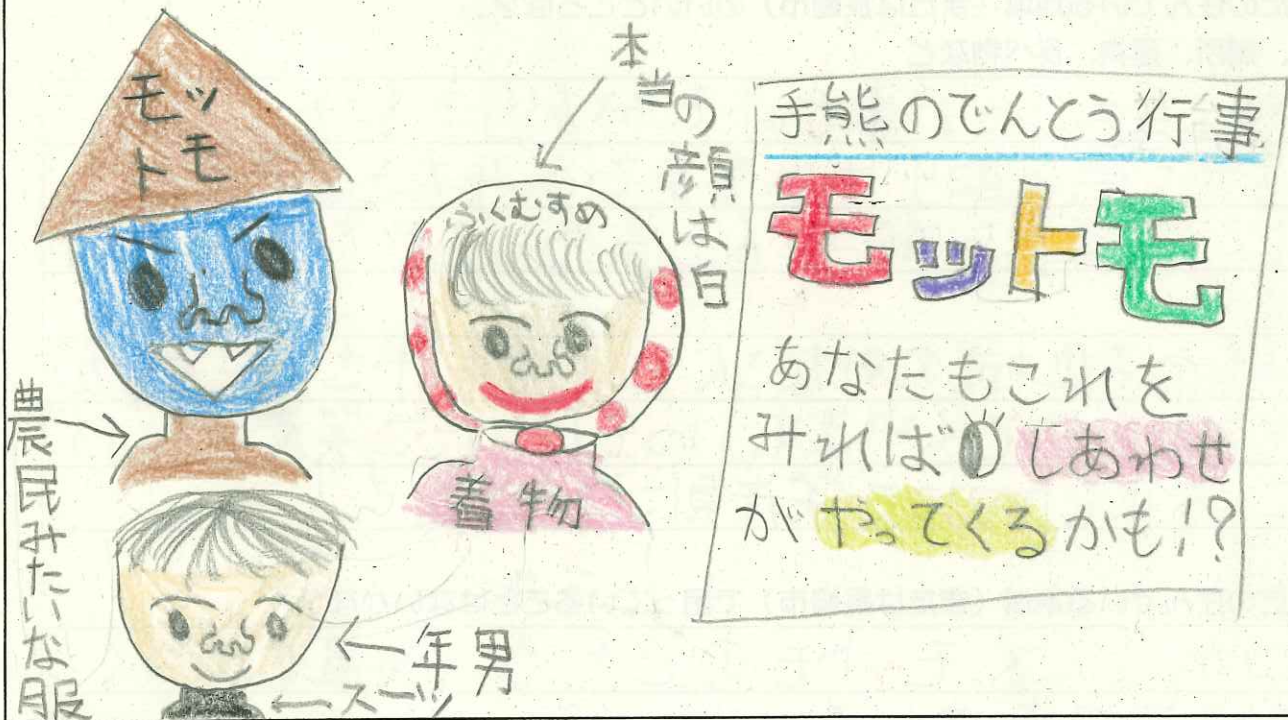 モットモ
農民みたいな服
年男
スーツ
ふくむすめ
着物
本当の顔は白
手熊のでんとう行事
モットモ
あなたもこれを
みればしあわせ
がやってくるかも!?